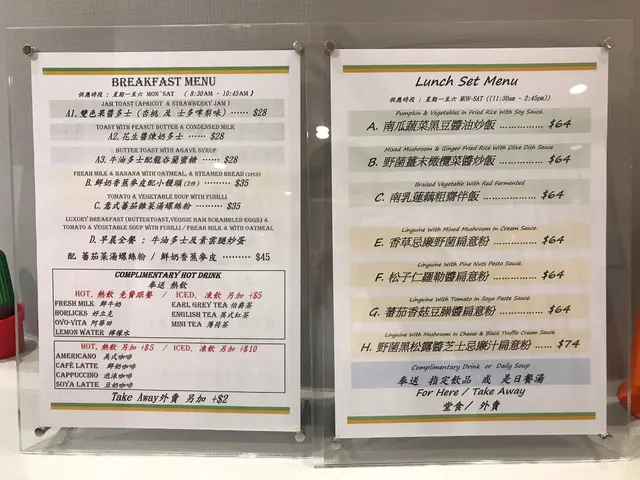 BREAKFAST MENU
供應時段 : 星期一至六 MON~SAT ( 8:30AM - 10:45AM )
JAM TOAST(APRICOT & STRAWBERRY JAM )
A1. 雙色果醬多士 (杏桃 及 士多啤梨味) ...... $28
TOAST WITH PEANUT BUTTER & CONDENSED MILK
A2. 花生醬煉奶多士 ...... $28
BUTTER TOAST WITH AGAVE SYRUP
A3. 牛油多士配龍舌蘭蜜糖 ...... $28
FREAH MILK & BANANA WITH OATMEAL, & STEAMED BREAD (2PCS)
B. 鮮奶香蕉麥皮配小饅頭 (2件) ......... $35
TOMATO & VEGETABLE SOUP WITH FUSILLI
C. 意式蕃茄雜菜湯螺絲粉 ......... $35
LUXURY BREAKFAST (BUTTERTOAST,VEGGIE HAM SCRAMBLED EGGS) &
TOMATO & VEGETABLE SOUP WITH FUSILLI / FREAH MILK & WITH OATMEAL
D. 早晨全餐 : 牛油多士及素雲腿炒蛋
配 蕃茄菜湯螺絲粉 / 鮮奶香蕉麥皮 ...... $45
COMPLIMENTARY HOT DRINK
奉送 熱飲
HOT, 熱飲 免費跟餐 / ICED, 凍飲 另加 +$5
FRESH MILK 鮮牛奶 EARL GREY TEA 伯爵茶
HORLICKS 好立克 ENGLISH TEA 英式紅茶
OVO-VITA 阿華田 MINI TEA 薄荷茶
LEMON WATER 檸檬水
HOT, 熱飲 另加 +$5 / ICED, 凍飲 另加 +$10
AMERICANO 美式咖啡
CAFÉ LATTE 鮮奶咖啡
CAPPUCCINO 泡沫咖啡
SOYA LATTE 豆奶咖啡
Take Away外賣 另加 +$2
Lunch Set Menu
供應時段 : 星期一至六 MON-SAT ((11:30am - 2:45pm))
Pumpkin & Vegetables in Fried Rice With Soy Sauce
A. 南瓜蔬菜黑豆醬油炒飯 ............... $64
Mixed Mushroom & Ginger Fried Rice With Olive Dish Sauce
B. 野菌薑末橄欖菜醬炒飯 ............... $64
Braised Vegetable With Red Fermented
C. 南乳蓮藕粗齋伴飯 ............... $64
Linguine With Mixed Mushroom In Cream Sauce
E. 香草忌廉野菌扁意粉 ............... $64
Linguine With Pine Nuts Pesto Sauce
F. 松子仁羅勒醬扁意粉 ............... $64
Linguine With Tomato In Soya Paste Sauce
G. 蕃茄香菇豆韻醬扁意粉 ............ $64
Linguine With Mushroom In Cheese & Black Truffle Cream Sauce
H. 野菌黑松露醬芝士忌廉汁扁意粉 ...... $74
Complimentary Drink or Daily Soup
奉送 指定飲品 或 是日餐湯
For Here / Take Away
堂食/ 外賣